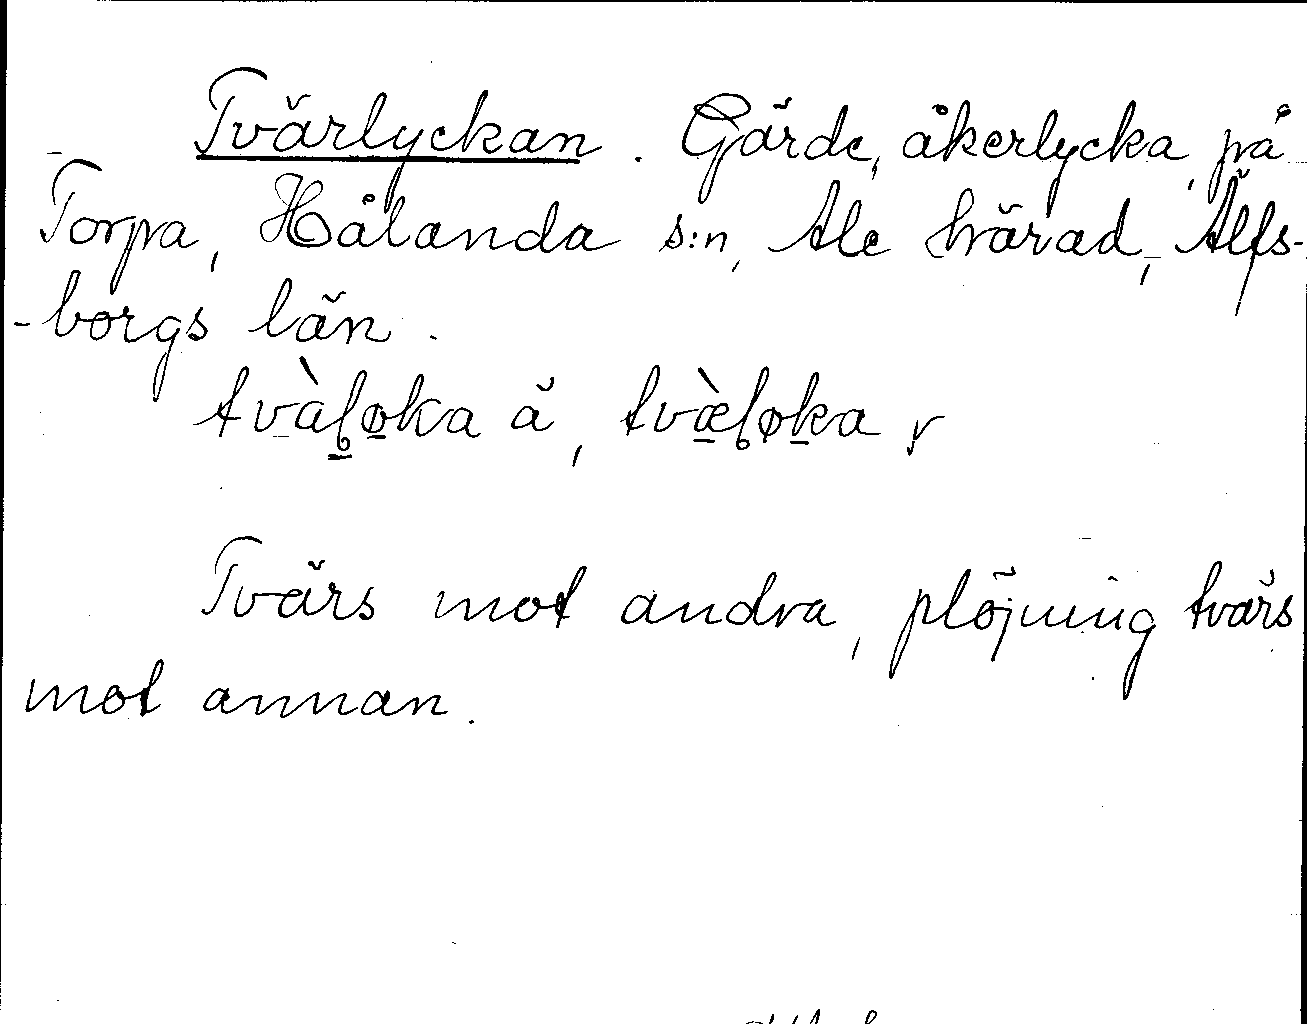 Tvärlyckan. Gärde, åkerlycka, på
Torpa, Hålanda s:n, Ale härad, Älfs-
-borgs län.
tvàḷøka ä, tvæ̀ḷøka r
Tvärs mot andra, plöjning tvärs
mot annan.